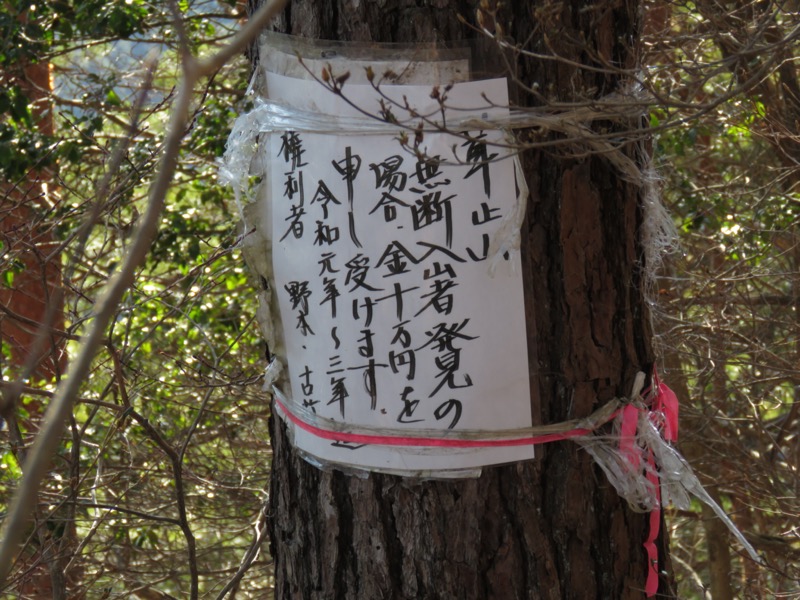 茸止山
無断入出者発見の
場合、金十万円を
申し受けます。
令和元年〜三年
権利者 野木・古